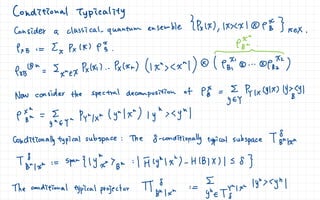 Conditional Typicality
Consider a classical-quantum ensemble {P_X(x), |x><x| ⊗ ρ_B^x}_{x∈X}.
ρ_XB := Σ_x P_X(x) ρ_B^x.
ρ_{B^n}^{x^n}
ρ_XB^{⊗n} = Σ_{x^n∈X^n} P_X(x_1) .. P_X(x_n) (|x^n><x^n|) ⊗ (ρ_{B_1}^{x_1} ⊗ ... ⊗ ρ_{B_n}^{x_n})
Now consider the spectral decomposition of ρ_B^x = Σ_{y∈Y} P_{Y|X}(y|x) |y><y|_B
ρ_{B^n}^{x^n} = Σ_{y^n∈Y^n} P_{Y^n|X^n}(y^n|x^n) |y^n><y^n|
Conditionally typical subspace: The δ-conditionally typical subspace T^δ_{B^n|x^n}
T^δ_{B^n|x^n} := span{|y^n_{x^n}>_{B^n} : |H̄(y^n|x^n) - H(B|X)| ≤ δ}
The conditional typical projector Π^δ_{B^n|x^n} := Σ_{y^n∈T_δ^{Y^n|x^n}} |y^n><y^n|